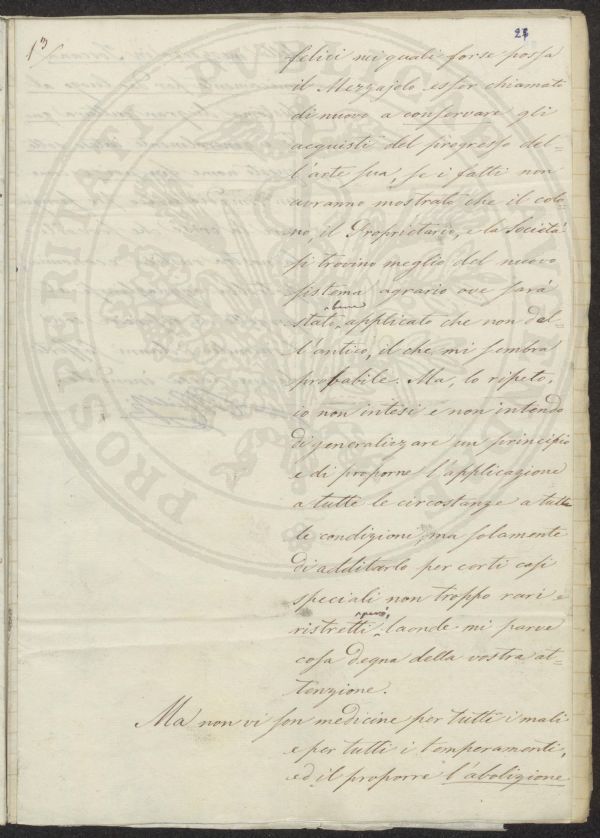 13
27
felici nei quali forse possa
il Mezzajolo esser chiamato
di nuovo a conservare gli
acquisti del progresso del=
l'arte sua, se i fatti non
avranno mostrato che il colo=
no, il Proprietario, e la Società
si trovino meglio del nuovo
sistema agrario ove sarà
bene
stato applicato che non del=
l'antico, il che mi sembra
probabile. Ma, lo ripeto,
io non intesi e non intendo
di generalizzare un principio
e di proporne l'applicazione
a tutte le circostanze a tutte
le condizioni, ma solamente
di additarlo per certi casi
speciali non troppo rari e
però,
ristretti laonde mi parve
cosa degna della vostra at=
tenzione.
Ma non vi son medicine per tutti i mali
e per tutti i temperamenti,
ed il proporre l'abolizione
PROSPERITATI PUBLICAE